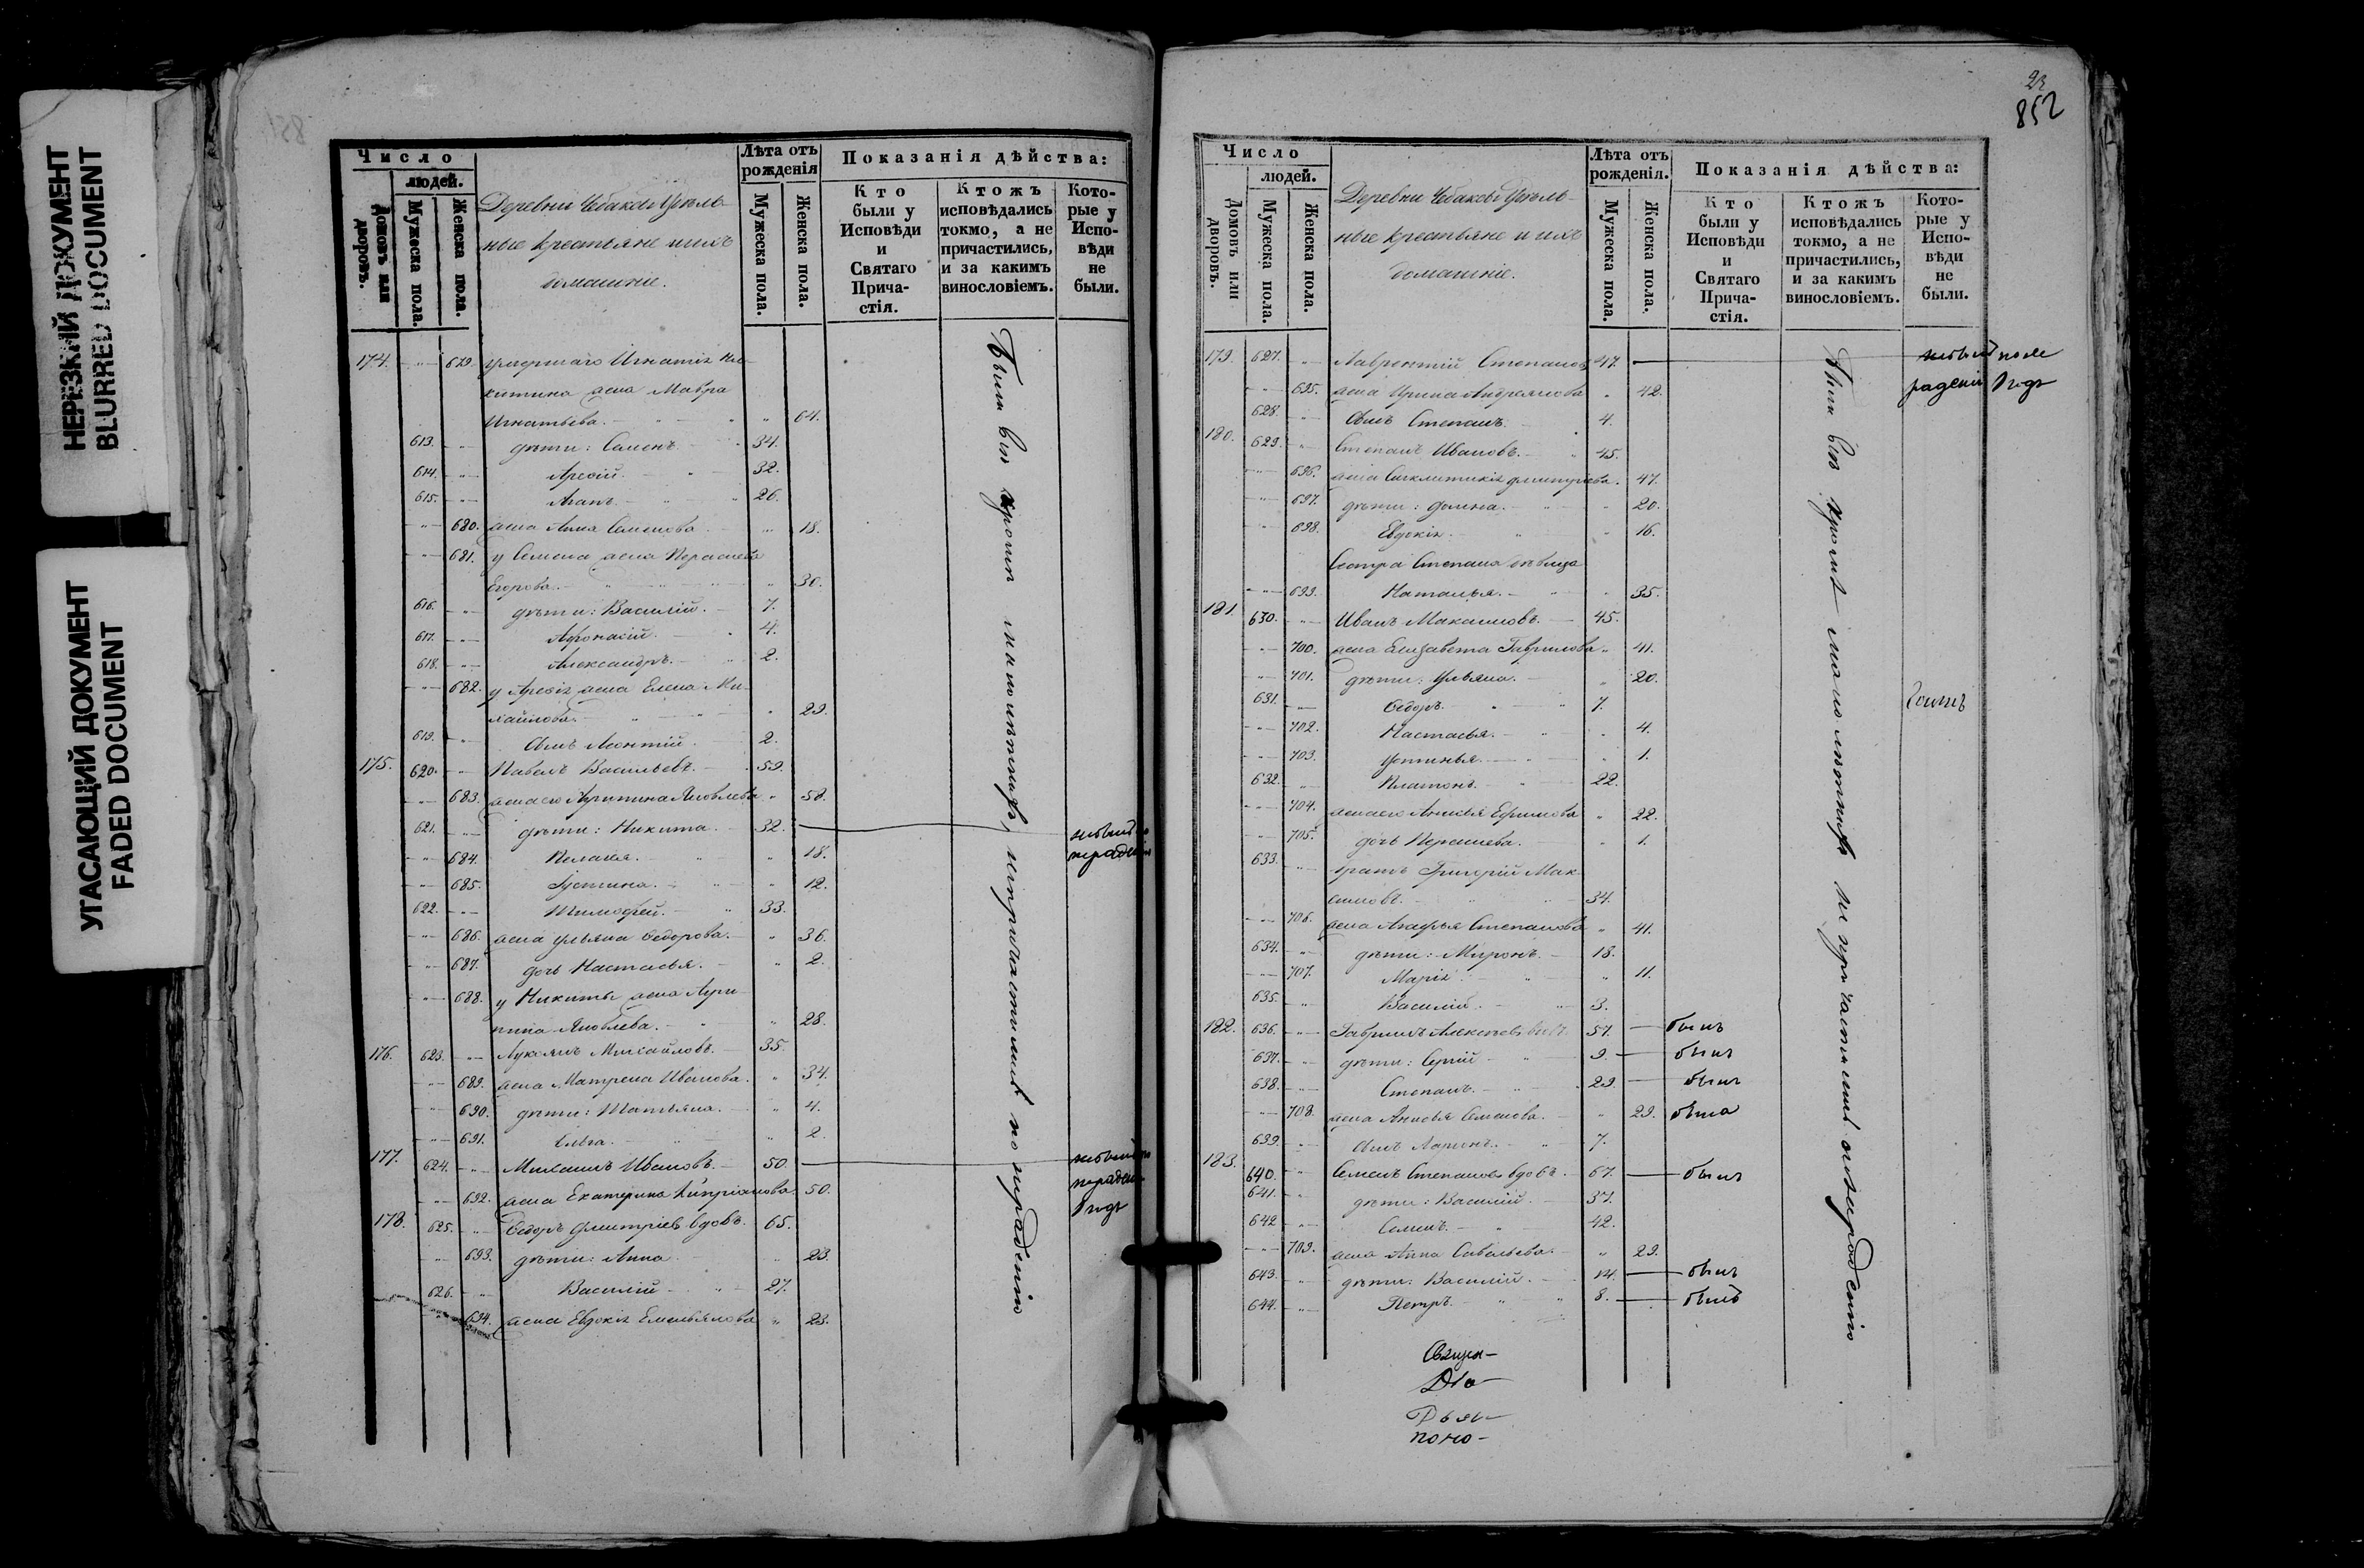 НЕРЕЗКИЙ ДОКУМЕНТ
BLURRED DOCUMENT
УГАСАЮЩИЙ ДОКУМЕНТ
FADED DOCUMENT
Число
людей.
домовъ или дворовъ.
Мужеска пола.
Женска пола.
Деревни Чебаковы Удѣль-
ные крестьяне и ихъ
домашніе.
Лѣта отъ рожденія
Мужеска пола.
Женска пола.
Показанія дѣйства:
Кто были у Исповѣди и Святаго Прича-стія.
Ктожъ исповѣдались токмо, а не причастились, и за какимъ винословіемъ.
Кото-рые у Испо-вѣди не были.
174. 679. умершаго Игнатія Ни-
китина жена Мавра
Игнатьева. 64.
613. дѣти: Семенъ 34.
614. Арефій. 32.
615. Агапъ. 26.
680. жена Анна Семенова 18.
681. у Семена жена Парасковья
Егорова. 30.
616. дѣти: Василій. 7.
617. Афонасій. 4.
618. Александръ. 2.
682. у Арефія жена Елена Ми-
хайлова. 29.
619. Сынъ Леонтій. 2.
175. 620. Павелъ Васильевъ. 59.
683. жена его Агрипина Яковлева 58.
621. дѣти: Никита. 32. небылъ по нерадѣнію
684. Пелагея. 18.
685. Іустина. 12.
622. Тимофей. 33.
686. жена Ульяна Федорова. 36.
687. дочь Настасья. 2.
688. у Никиты жена Агри-
пина Яковлева. 28.
176. 623. Лукьянъ Михайловъ. 35.
689. жена Матрена Иванова. 34.
690. дѣти: Татьяна. 4.
691. Ольга. 2.
177. 624. Михаилъ Ивановъ. 50. небылъ по нерадѣнію
692. жена Екатерина Кипріанова 50.
178. 625. Федоръ Дмитріевъ вдовъ. 65.
693. дѣти: Анна 23.
626. Василій 27.
694. жена Евдокія Емельянова 23.
Были вси кромѣ малолѣтнихъ, непричастились по нерадѣнію
852
Число
людей.
Домовъ или дворовъ.
Мужеска пола.
Женска пола.
Деревни Чебаковы Удѣль-
ные крестьяне и ихъ
домашніе.
Лѣта отъ рожденія.
Мужеска пола.
Женска пола.
Показанія дѣйства:
Кто были у Исповѣди и Святаго Прича-стія.
Ктожъ исповѣдались токмо, а не причастились, и за какимъ винословіемъ.
Кото-рые у Испо-вѣди не были.
179. 627. Лаврентій Степановъ 47.
695. жена Ирина Андреянова 42.
628. Сынъ Степанъ. 4.
180. 629. Степанъ Ивановъ. 45.
696. жена Синклитикія Дмитріева. 47.
697. дѣти: Домна. 20.
698. Евдокія. 16.
Сестра Степана дѣвица
699. Наталья. 35.
181. 630. Иванъ Максимовъ. 45.
700. жена Елизавета Гаврилова 41.
701. дѣти: Ульяна. 20.
631. Федоръ. 7.
702. Настасья. 4.
703. Устинья. 1.
632. Платонъ. 22.
704. жена его Анисья Ефимова 22.
705. дочь Парасковья. 1.
633. братъ Григорій Мак-
симовъ. 34.
706. жена Агафья Степанова 41.
634. дѣти: Миронъ. 18.
707. Марія. 11.
635. Василій. 3.
182. 636. Гавриилъ Алексѣевъ вдовъ 57. былъ
637. дѣти: Сергій 9. былъ
638. Степанъ. 29. былъ
708. жена Анисья Семенова. 29. была
639. Сынъ Ларіонъ. 7.
183. 640. Семенъ Степановъ вдовъ. 67. былъ
641. дѣти: Василій. 37.
642 Семенъ. 42.
709. жена Анна Савельева. 29.
643. дѣти: Василій. 14. былъ
644. Петръ. 8. былъ
Были всѣ кромѣ малолѣтнихъ не причастились по нерадѣнію
Священ-